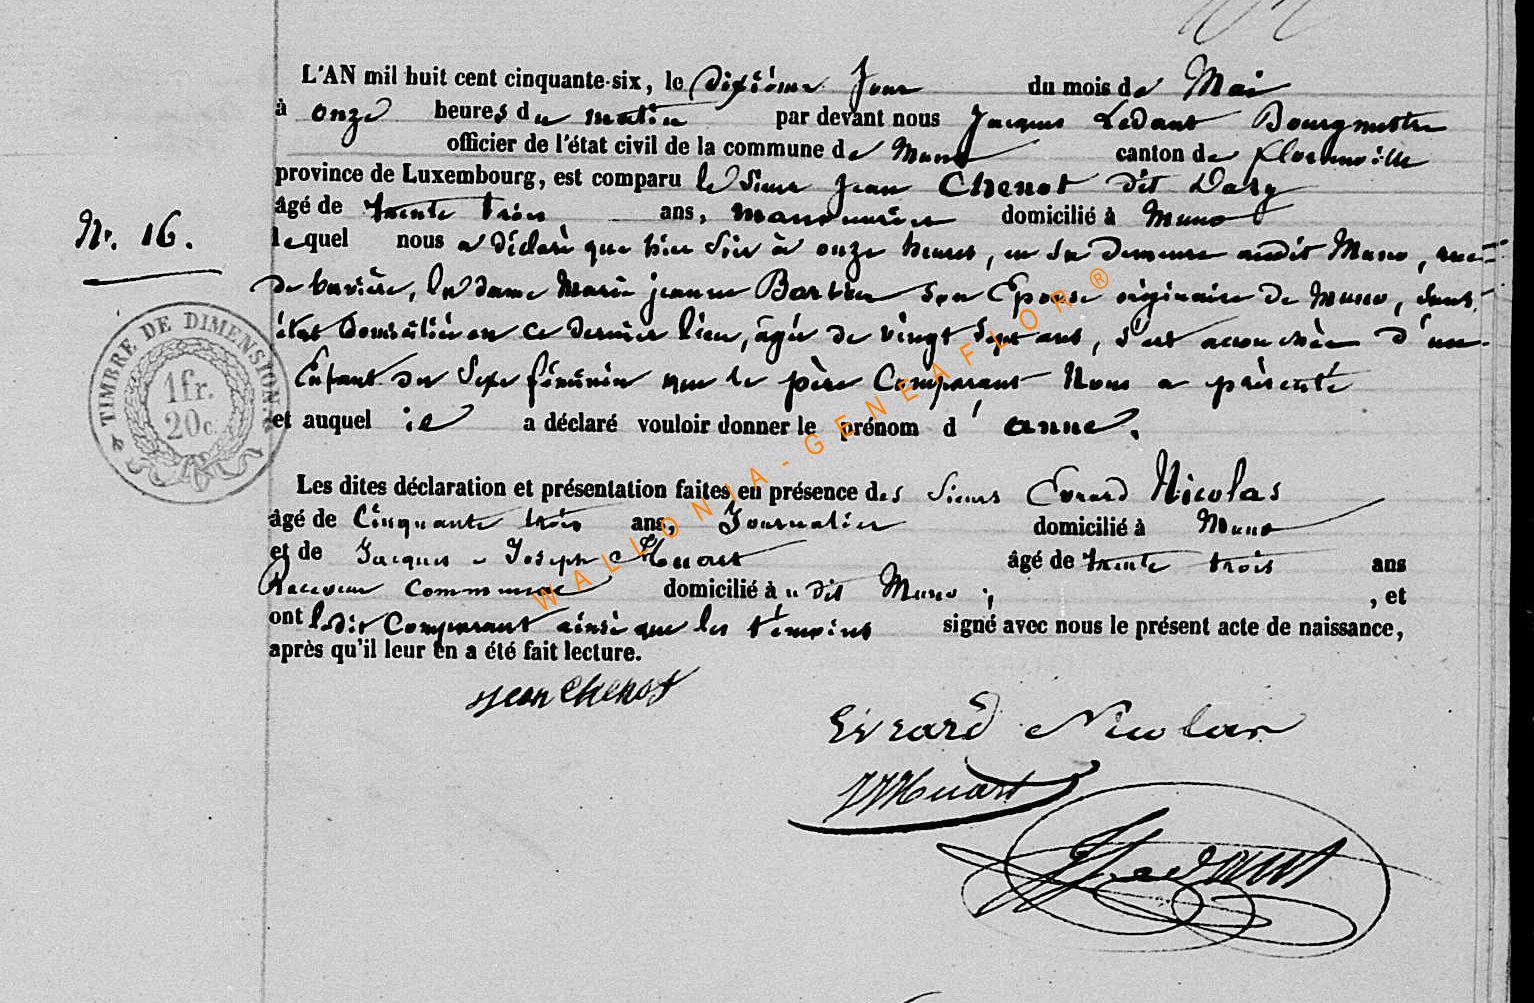 L'AN mil huit cent cinquante-six, le dixième Jour du mois de Mai
à onze heures du matin par devant nous Jacques Ledant Bourgmestre
officier de l'état civil de la commune de Muno canton de florenville
province de Luxembourg, est comparu le Sieur Jean Chenot dit Dasy
Nr. 16.
âgé de trente trois ans, manouvrier domicilié à Muno
lequel nous a déclaré que hier soir à onze heures, en sa demeure audit Muno, rue
de bavière, la dame Marie jeanne Barbier son Epouse originaire de Muno, dans
état domiciliée en ce dernier lieu, âgée de vingt sept ans, s'est accouchée d'un
Enfant du Sexe féminin que le père Comparant Nous a présenté
et auquel il a déclaré vouloir donner le prénom d'anne.
TIMBRE DE DIMENSION.
1 fr.
20 c.
Les dites déclaration et présentation faites en présence des Sieurs Evrard Nicolas
âgé de Cinquante trois ans, Journalier domicilié à Muno
et de Jacques Joseph Huart âgé de trente trois ans
Receveur Communal domicilié à u dit Muno ; , et
ont ledit Comparant ainsi que les témoins signé avec nous le présent acte de naissance,
après qu'il leur en a été fait lecture.
Jean Chenot
Evrard Nicolas
JJHuart
J Ledant
WALLONIA-GENEAFLOR®